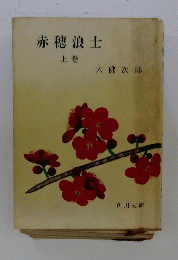 赤穂浪士
上巻
大佛次郎
角川文庫